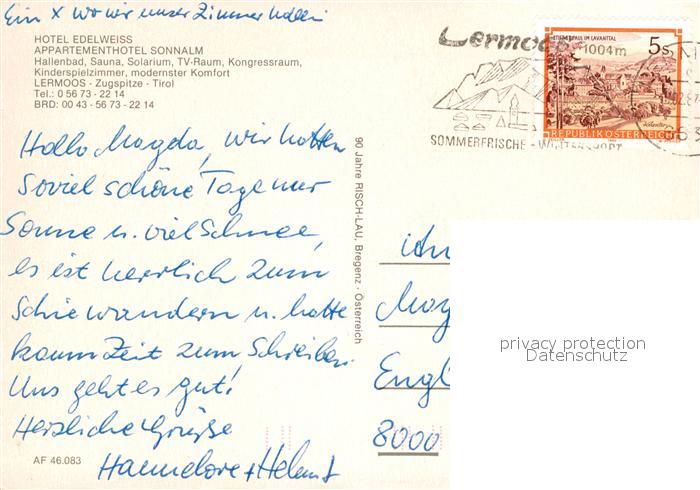 Ein X wo wir unser Zimmer haben
HOTEL EDELWEISS
APPARTEMENTHOTEL SONNALM
Hallenbad, Sauna, Solarium, TV-Raum, Kongressraum,
Kinderspielzimmer, modernster Komfort
LERMOOS - Zugspitze - Tirol
Tel.: 0 56 73 - 22 14
BRD: 00 43 - 56 73 - 22 14
Hallo Magda, wir hatten
soviel schöne Tage nur
Sonne u. viel Schnee,
es ist herrlich zum
Schiewandern u. hatte
kaum Zeit zum Schreiben.
Uns geht es gut!
Herzliche Grüße
Hannelore + Helmut
AF 46.083
90 Jahre RISCH-LAU, Bregenz - Österreich
Lermoos
1004m
SOMMERFRISCHE - WINTERSPORT
ST. PAUL IM LAVANTTAL
5s
REPUBLIK ÖSTERREICH
An
Mag
Engl
8000
privacy protection
Datenschutz